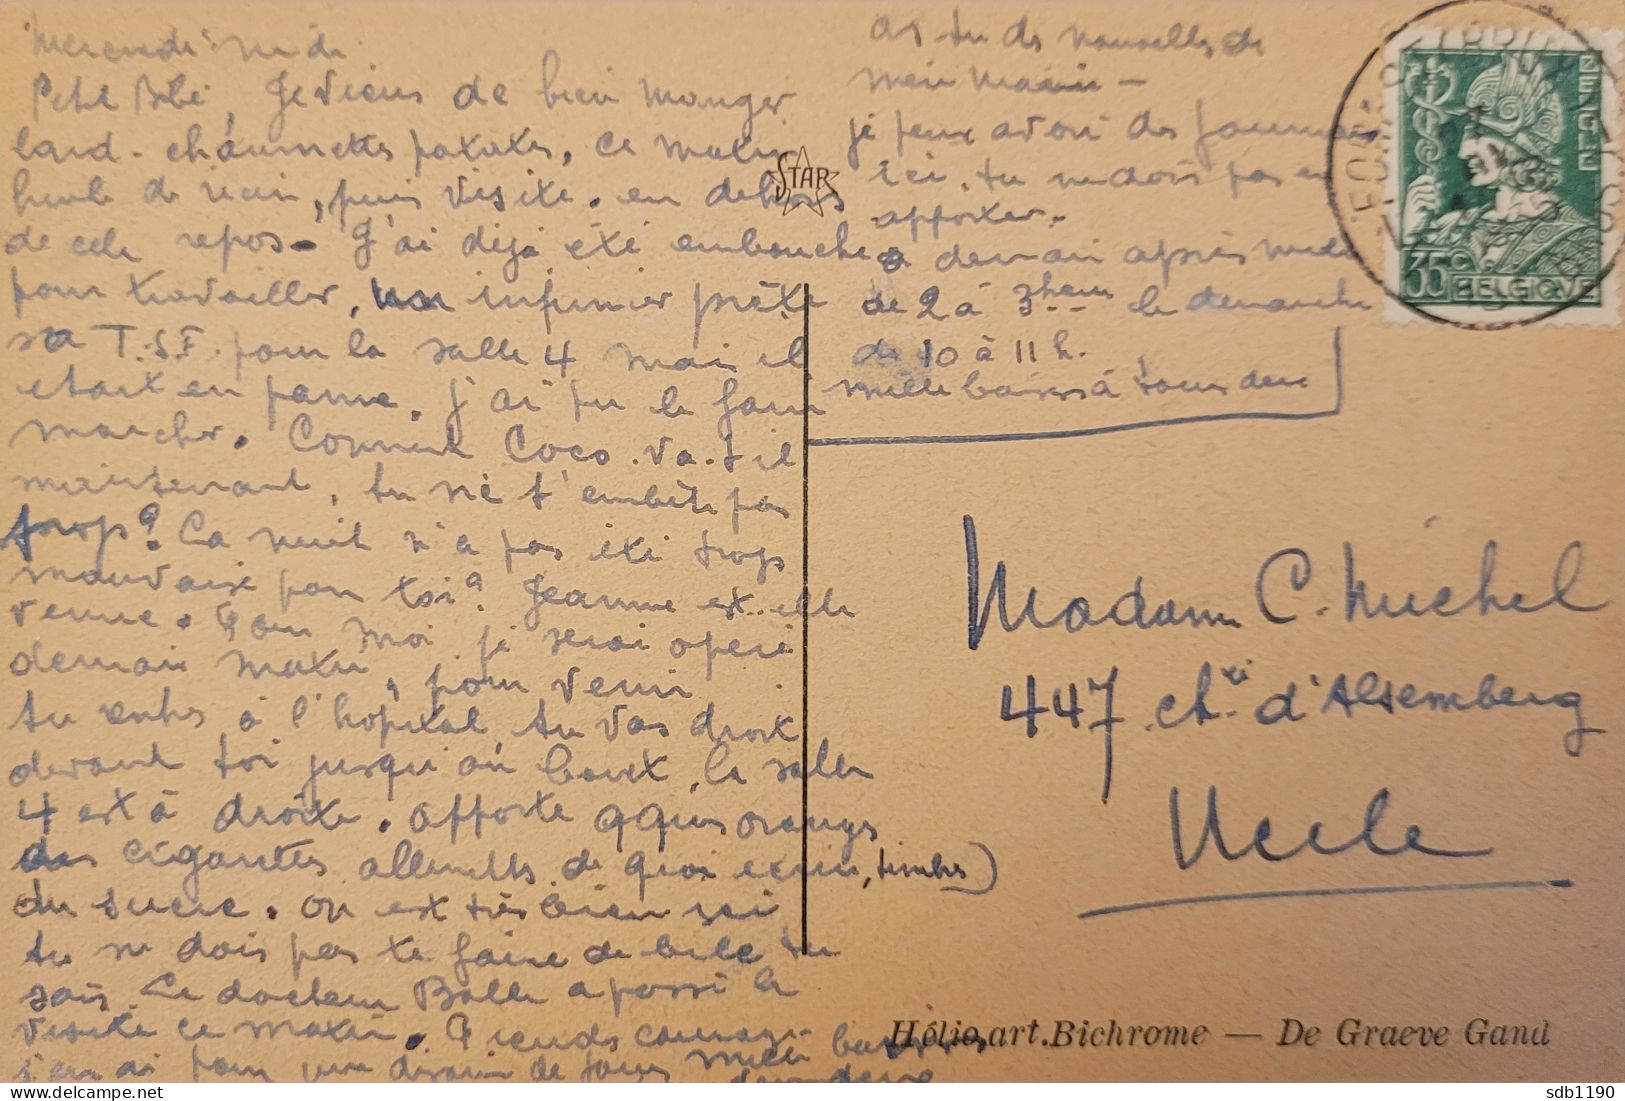 Mercredi midi
Petit Bébé, Je viens de bien manger
lard - chaumettes patates, ce matin
huile de ricin, puis visite. en dehors
de cela repos. J'ai déjà été embauché
pour travailler, un infirmier prête
sa T.S.F. pour la salle 4 mais il
était en panne. J'ai pu le faire
marcher. Comment Coco va-t-il
maintenant, tu ne t'embête pas
trop? La nuit n'a pas été trop
mauvaise pour toi? Jeanne est-elle
venue. Pour moi je serai opéré
demain matin, pour venir
tu entres à l'hopital, tu vas droit
devant toi jusqu'au bout, la salle
4 est à droite. apporte qques oranges
des cigarettes allumettes de quoi écrire, timbres)
du sucre. On est très bien ici
tu ne dois pas te faire de bile tu
sais. Le docteur Balle a passé la
visite ce matin. Prends courage
j'en ai pour une dizaine de jours mille baisers
as tu des nouvelles de
mem mamie -
je peux avoir des journaux
ici, tu ne dois pas en
apporter.
à demain après midi
de 2 à 3 heures le dimanche
de 10 à 11 h.
mille baisers à tous deux
STAR
BELGIE
35 BELGIQUE
Madame C. Muchel
447 chée d'Alsemberg
Uccle
Hélio.art.Bichrome — De Graeve Gand
sdb1190